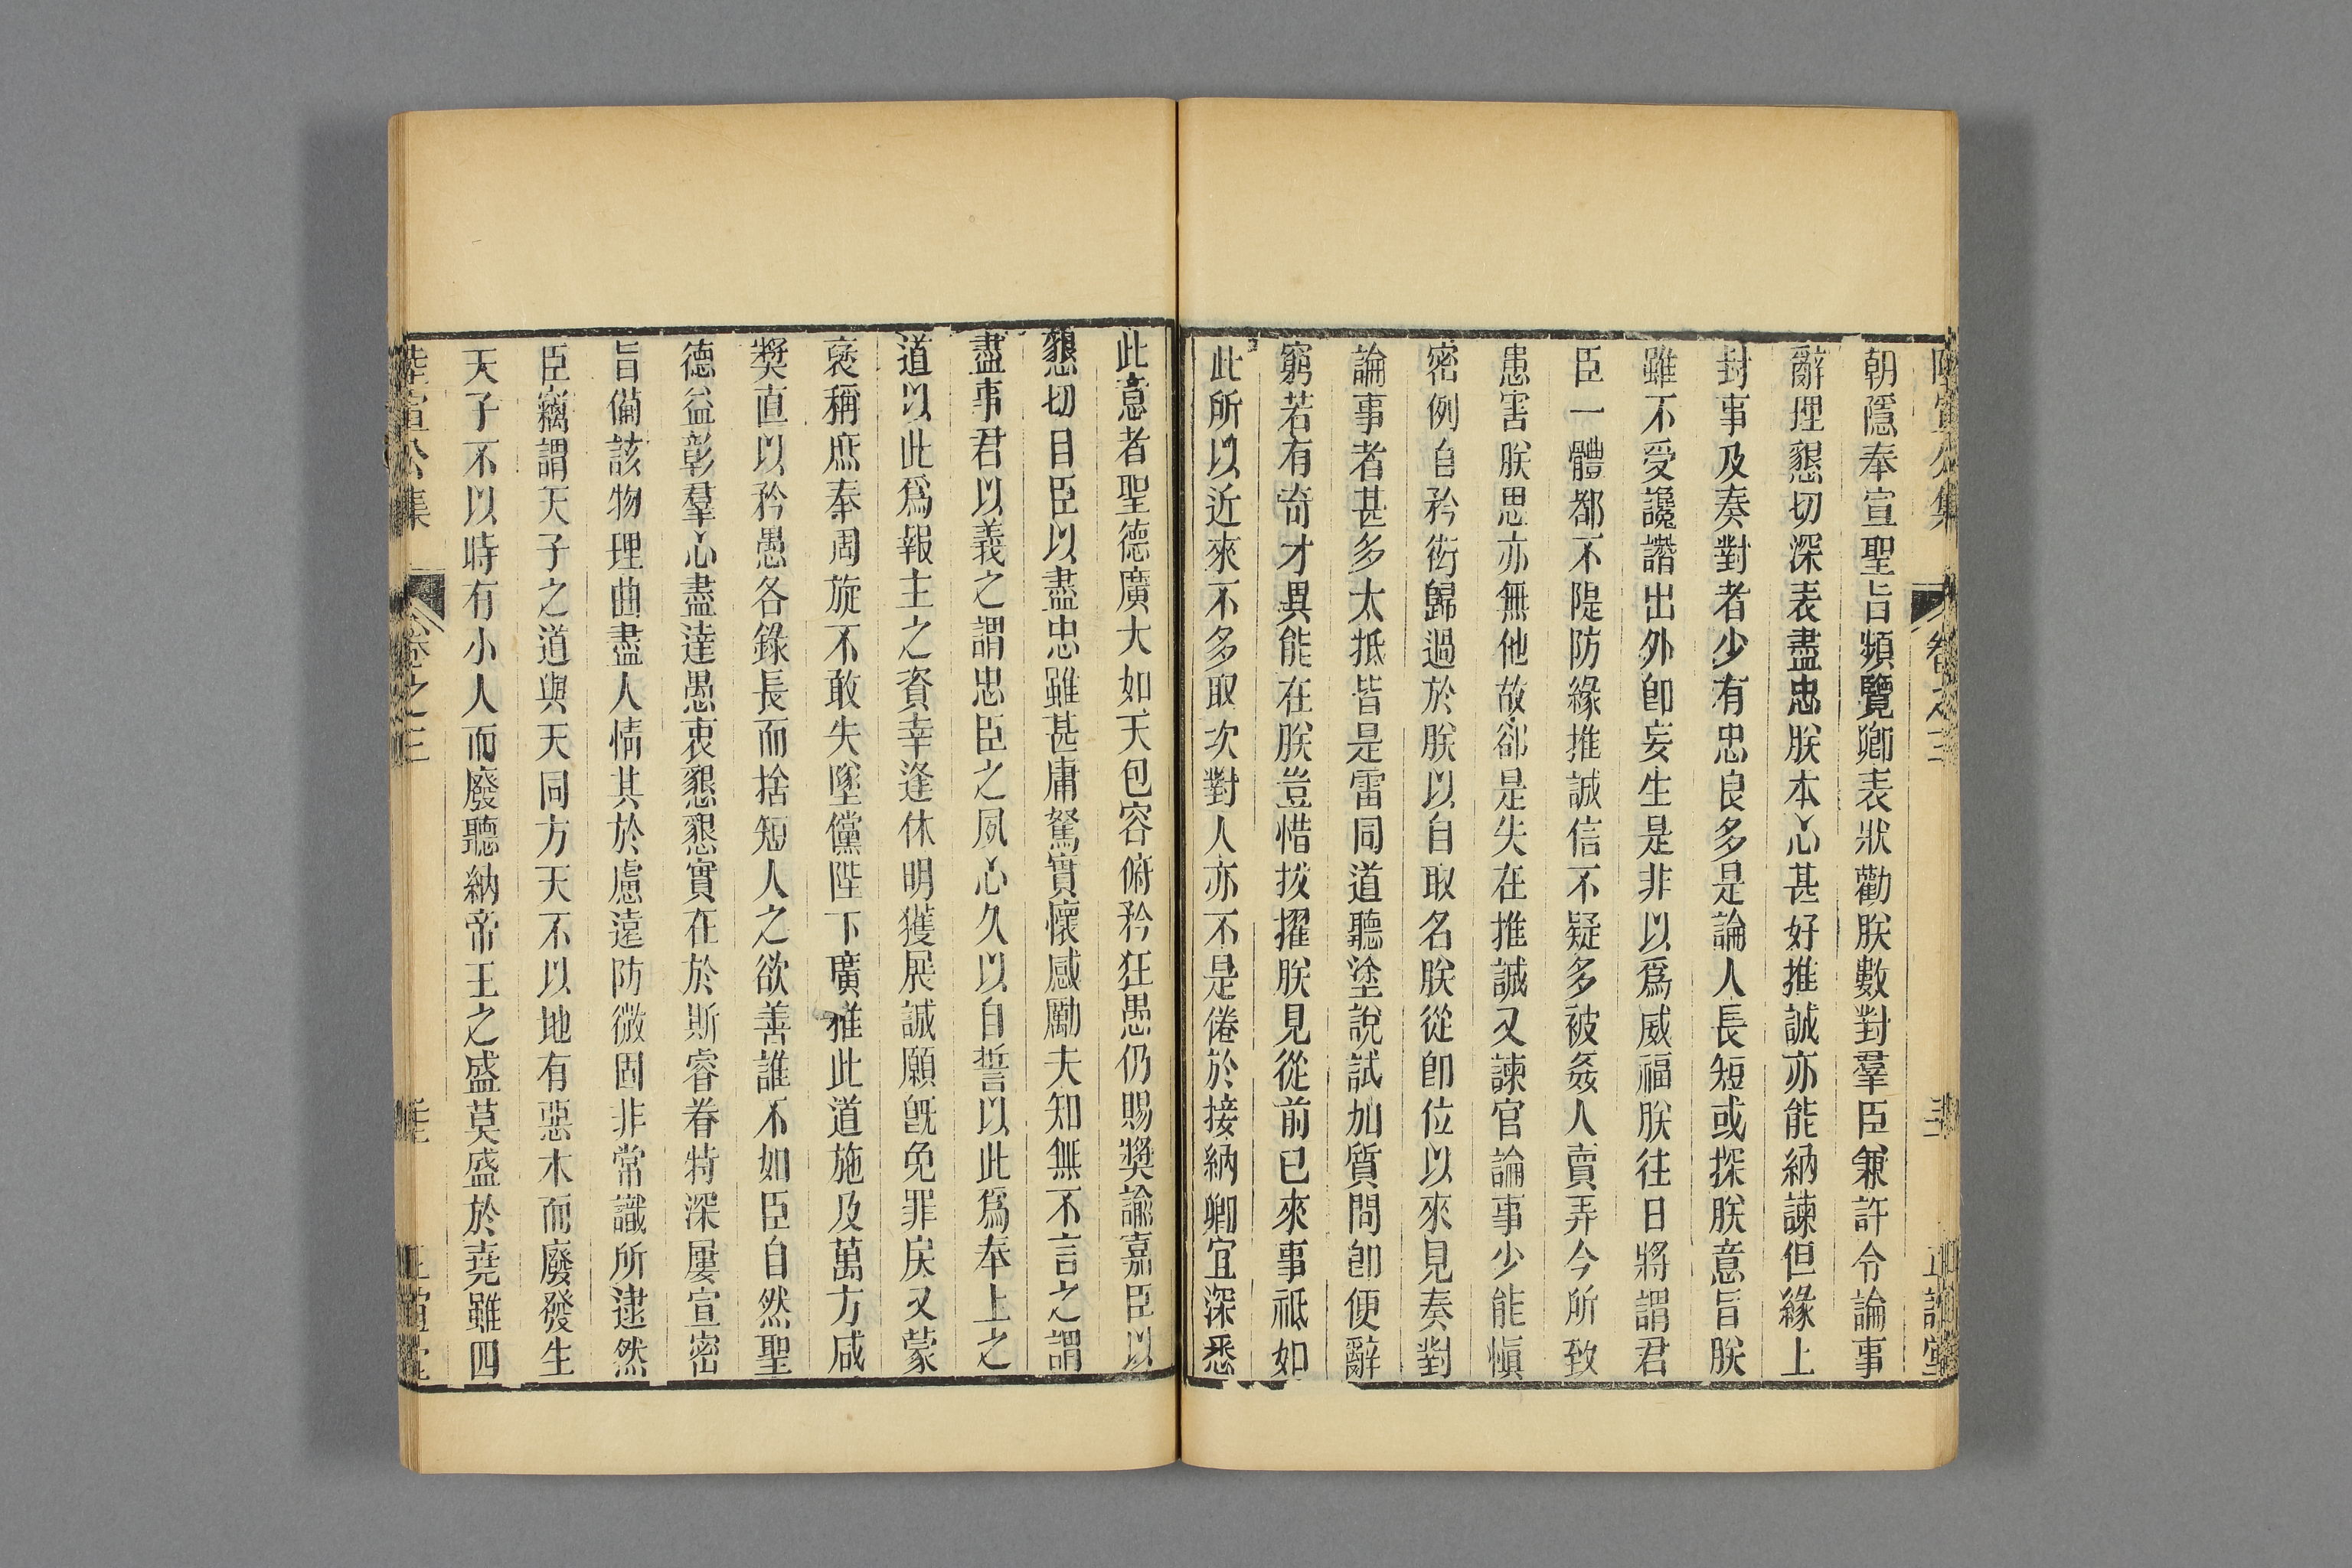 朝隱奉宣聖旨頻覽卿表狀勸朕數對羣臣兼許令論事
辭理懇切深表盡忠朕本心甚好推誠亦能納諫但緣上
封事及奏對者少有忠良多是論人長短或探朕意旨朕
雖不受讒譖出外卽妄生是非以爲威福朕往日將謂君
臣一體都不隄防緣推誠信不疑多被姦人賣弄今所致
患害朕思亦無他故郤是失在推誠又諫官論事少能愼
密例自矜衒歸過於朕以自取名朕從卽位以來見奏對
論事者甚多太抵皆是雷同道聽塗說試加質問卽便辭
窮若有奇才異能在朕豈惜拔擢朕見從前已來事祗如
此所以近來不多取次對人亦不是倦於接納卿宜深悉
此意者聖德廣大如天包容俯矜狂愚仍賜獎諭嘉臣以
懇切目臣以盡忠雖甚庸駑實懷感勵夫知無不言之謂
盡事君以義之謂忠臣之夙心久以自誓以此爲奉上之
道以此爲報主之資幸逢休明獲展誠願旣免罪戾又蒙
褒稱庶奉周旋不敢失墜儻陛下廣推此道施及萬方咸
獎直以矜愚各錄長而捨短人之欲善誰不如臣自然聖
德益彰羣心盡達愚衷懇懇實在於斯睿眷特深屢宣密
旨備該物理曲盡人情其於慮遠防微固非常識所逮然
臣竊謂天子之道與天同方天不以地有惡木而廢發生
天子不以時有小人而廢聽納帝王之盛莫盛於堯雖四
陸宣公集 卷之三